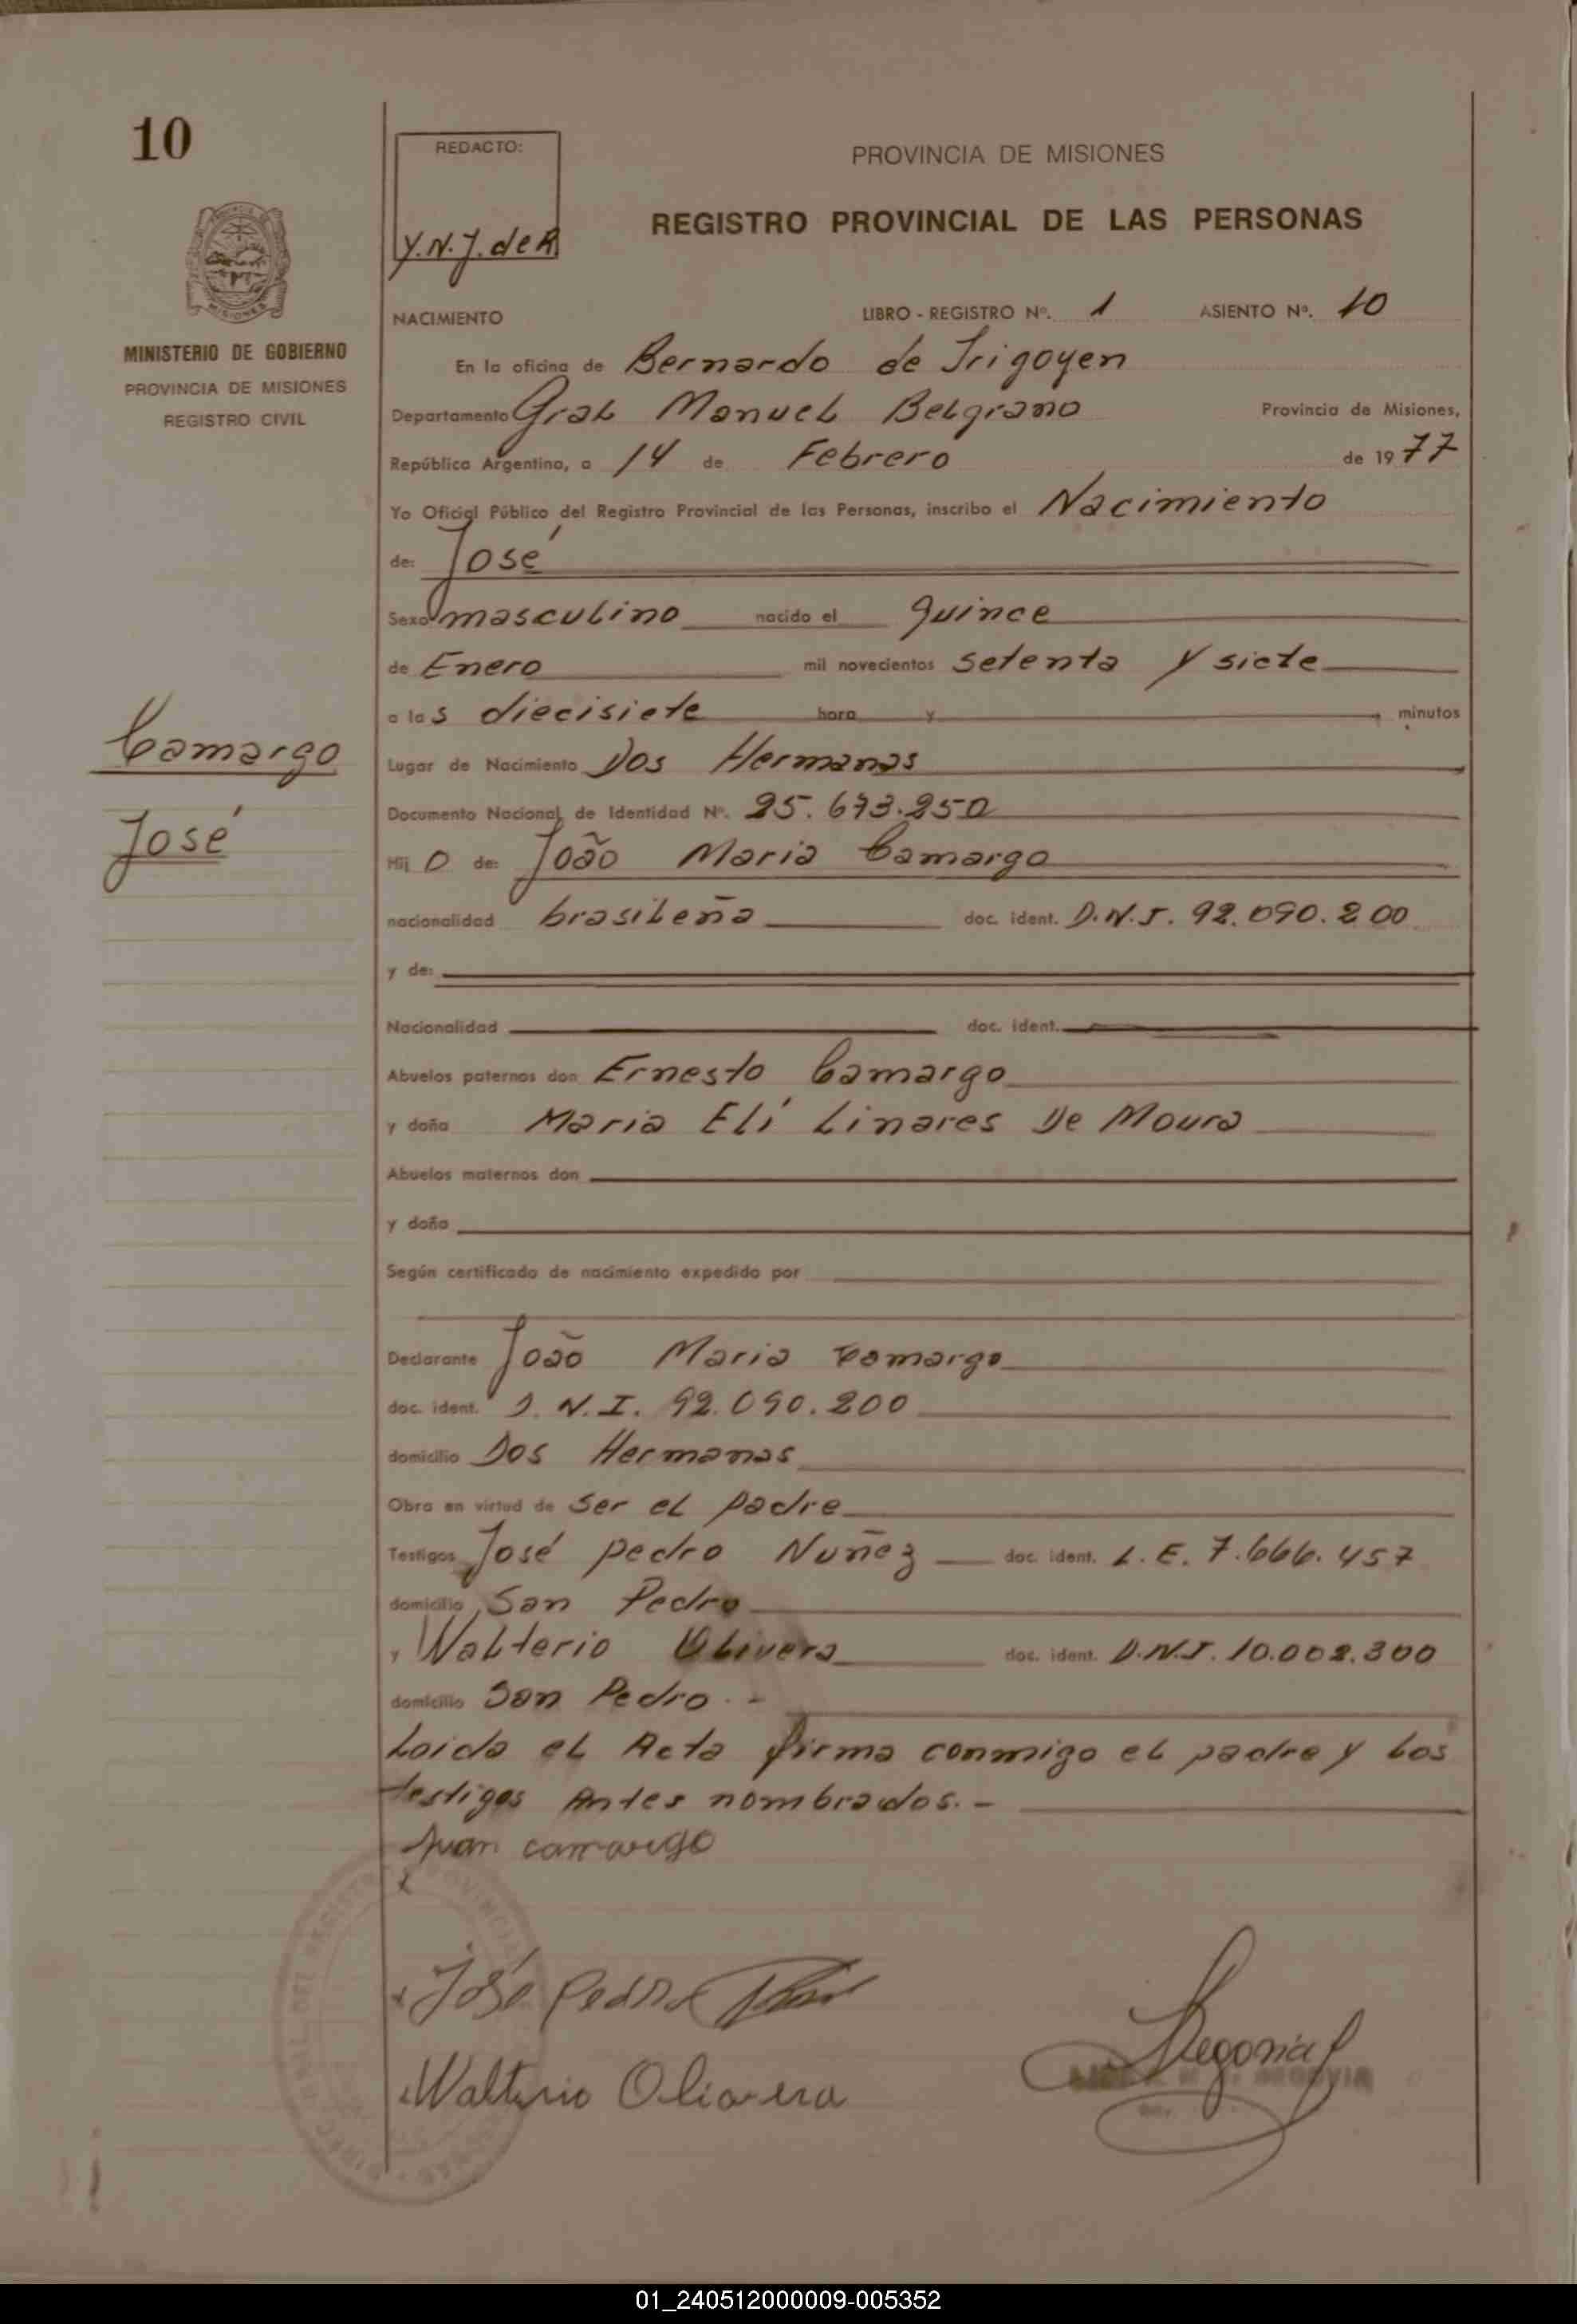 10
REDACTO:
Y.N.J. de R.
PROVINCIA DE MISIONES
REGISTRO PROVINCIAL DE LAS PERSONAS
MINISTERIO DE GOBIERNO
PROVINCIA DE MISIONES
REGISTRO CIVIL
NACIMIENTO LIBRO - REGISTRO Nº. 1 ASIENTO Nº. 10
En la oficina de Bernardo de Irigoyen
Departamento Gral Manuel Belgrano Provincia de Misiones,
República Argentina, a 14 de Febrero de 1977
Yo Oficial Público del Registro Provincial de las Personas, inscribo el Nacimiento
de: José
Sexo masculino nacido el quince
de Enero mil novecientos setenta y siete
a las diecisiete hora y minutos
Camargo
José
Lugar de Nacimiento Dos Hermanas
Documento Nacional de Identidad Nº. 25.673.250
Hijo de: João Maria Camargo
nacionalidad brasileña doc. ident. D.N.I. 92.090.200
y de:
Nacionalidad doc. ident.
Abuelos paternos don Ernesto Camargo
y doña Maria Elí Linares De Moura
Abuelos maternos don
y doña
Según certificado de nacimiento expedido por
Declarante João Maria Camargo
doc. ident. D.N.I. 92.090.200
domicilio Dos Hermanas
Obra en virtud de ser el padre
Testigos José pedro Nuñez doc. ident. L.E. 7.666.457
domicilio San Pedro
y Walterio Olivera doc. ident. D.N.I. 10.002.300
domicilio San Pedro.-
Loida el Acta firma conmigo el padre y los
testigos Antes nombrados.-
Juan camargo
José Pedro
Walterio Olivera
Segovia
SEGOVIA
01_240512000009-005352